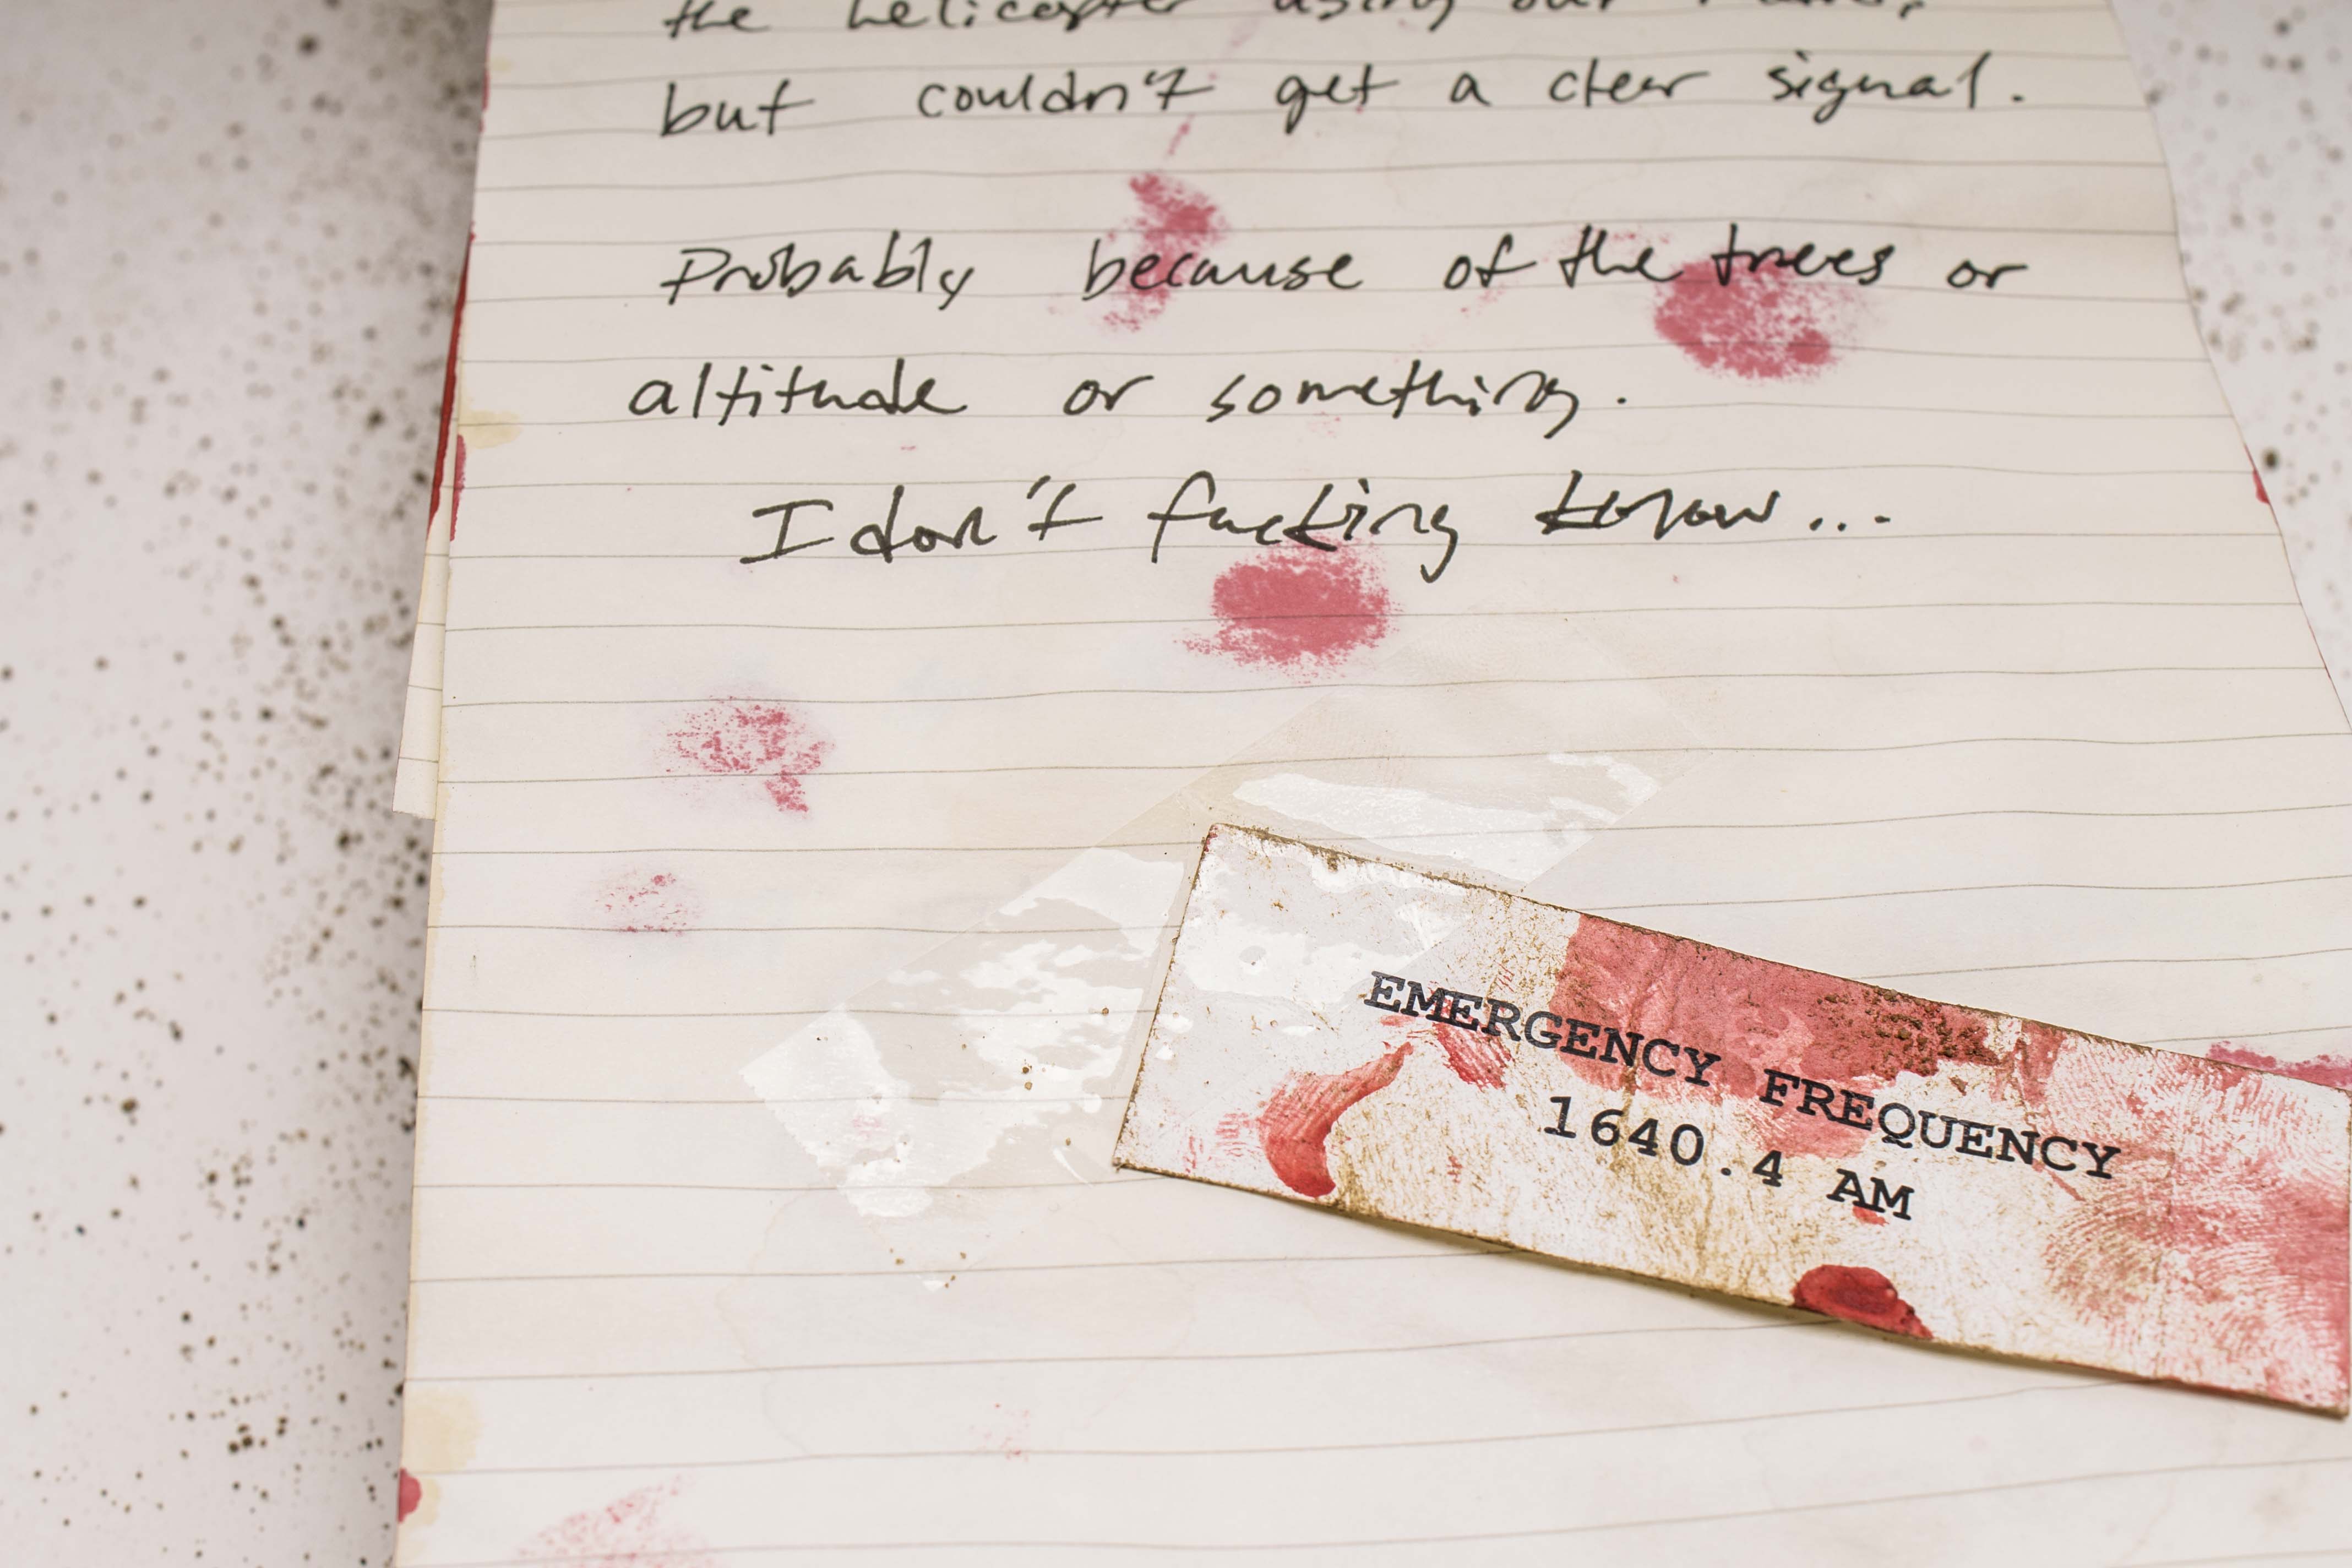 the helicopter using our
but couldn't get a clear signal.
Probably because of the trees or
altitude or something.
I don't fucking know...
EMERGENCY FREQUENCY
1640.4 AM